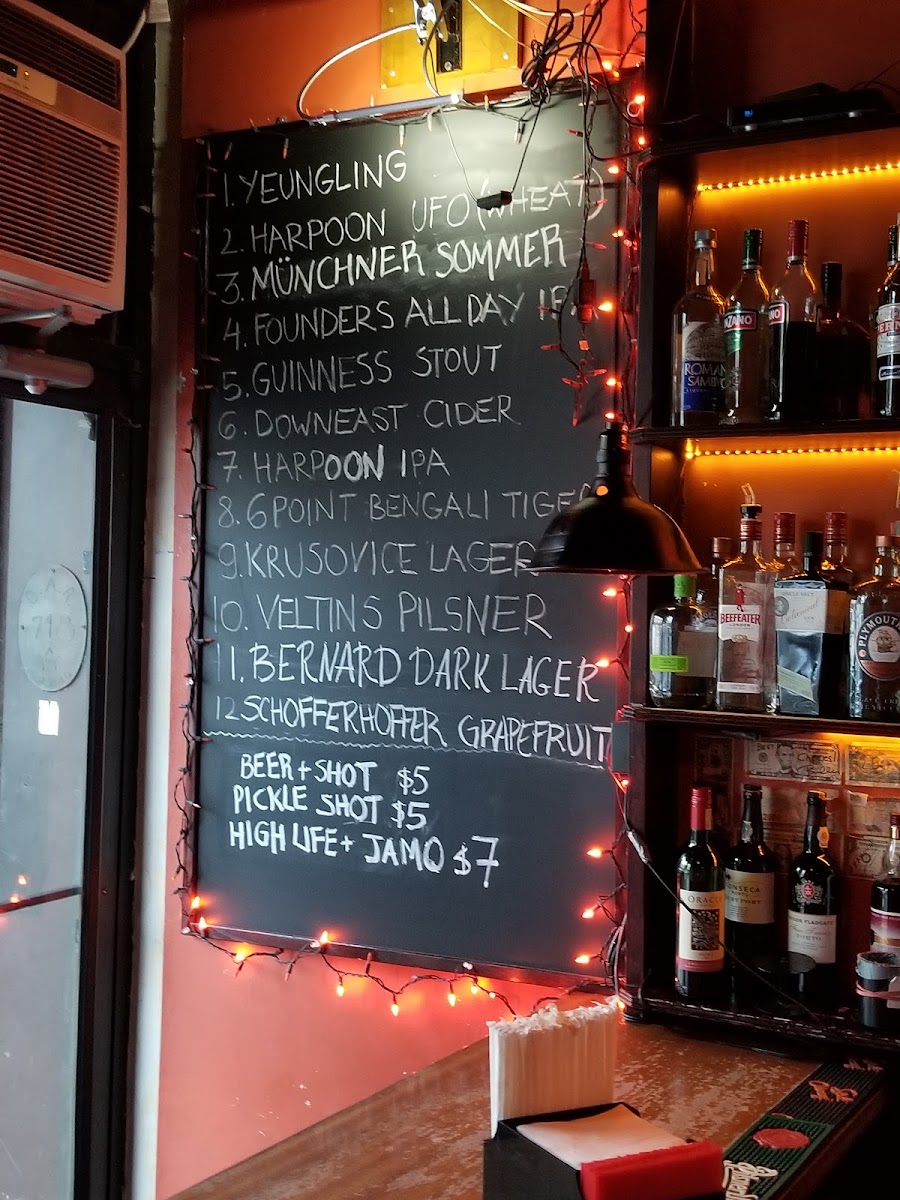 1. YEUNGLING
2. HARPOON UFO (WHEAT)
3. MÜNCHNER SOMMER
4. FOUNDERS ALL DAY
5. GUINNESS STOUT
6. DOWNEAST CIDER
7. HARPOON IPA
8. 6POINT BENGALI
9. KRUSOVICE LAGER
10. VELTINS PILSNER
11. BERNARD DARK LAGER
12 SCHOFFERHOFFER GRAPEFRUIT
BEER + SHOT $5
PICKLE SHOT $5
HIGH LIFE + JAMO $7
BEEFEATER
LONDON
PLYMOUTH
ORACLE
FONSECA